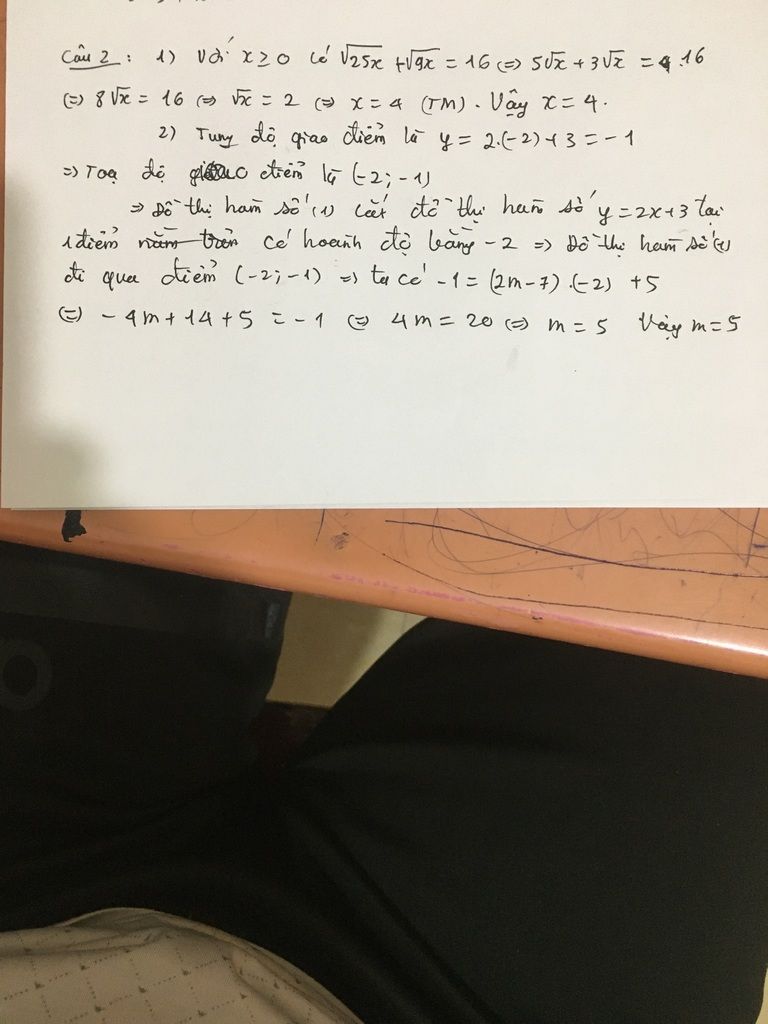 Câu 2: 1) Với x ≥ 0 có √25x + √9x = 16 ⇔ 5√x + 3√x = 16
⇔ 8√x = 16 ⇔ √x = 2 ⇔ x = 4 (TM). Vậy x = 4.
2) Tung độ giao điểm là y = 2.(-2)+3 = -1
⇒ Toạ độ giao điểm là (-2; -1)
⇒ Đồ thị hàm số (1) cắt đồ thị hàm số y = 2x+3 tại
1 điểm nằm trên có hoành độ bằng -2 ⇒ Đồ thị hàm số (1)
đi qua điểm (-2; -1) ⇒ ta có -1 = (2m-7).(-2) +5
⇔ -4m+14+5 = -1 ⇔ 4m = 20 ⇔ m = 5 Vậy m = 5